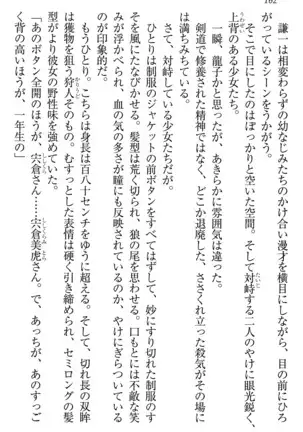 162
謙一は相変わらずの幼なじみのかけ合い漫才を横目にしながら、ひろ
がっているシーンをうかがう。
そこで目にしたのはぽっかりと空いた空間。そして対峙する二人のやけに眼光鋭く、
上背のある少女たち。
一瞬、龍子かと思ったが、あきらかに雰囲気は違う。
剣道で修養された精神ではなく、どこか退廃した、ささくれ立った殺気がその場に
は満ちみちている。
さて、対峙している少女たちだが。
ひとりは制服のジャケットの前ボタンをすべてはずして、妙にすり切れた制服のす
そを風になたびかせる。髪型は荒く切られ、狼の尾を思わせる。口もとには不敵な笑
みが浮かべられ、血の気の多さが瞳にも反映されているのか、やけにぎらついている
のが印象的だ。
もうひとり。こちらは身長は百八十センチをゆうに超える。そして、切れ長の双眸
は獲物を狙う狩人そのもの。むすっとした表情は硬く引き締められ、セミロングの髪
型がより彼女の野性味を強めていた。
「あのボタン全開のほうが、宍倉さん……宍倉美虎さん。で、あっちが、あのすっご
く背の高いほうが、一年生の」